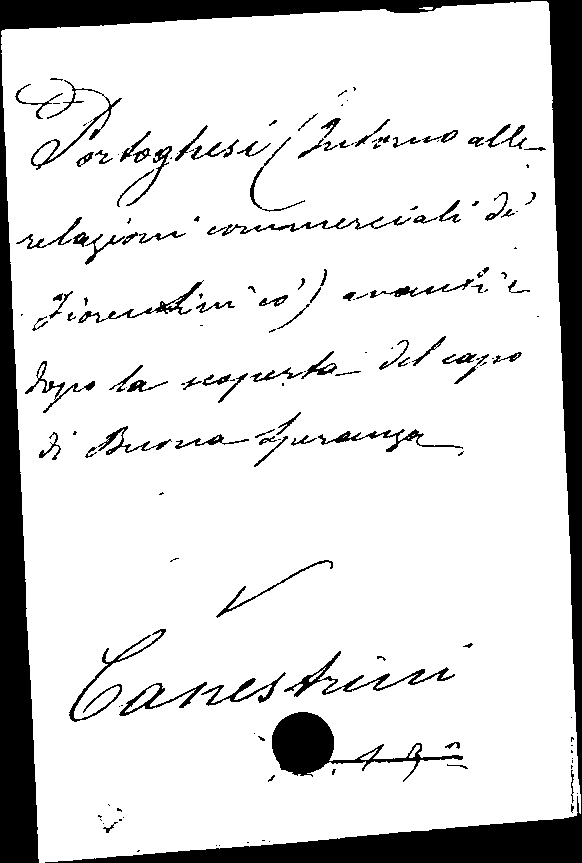 Portoghesi (Intorno alle
relazioni commerciali de'
Fiorentini co') avanti e
dopo la scoperta del capo
di Buona Speranza
V
Canestrini